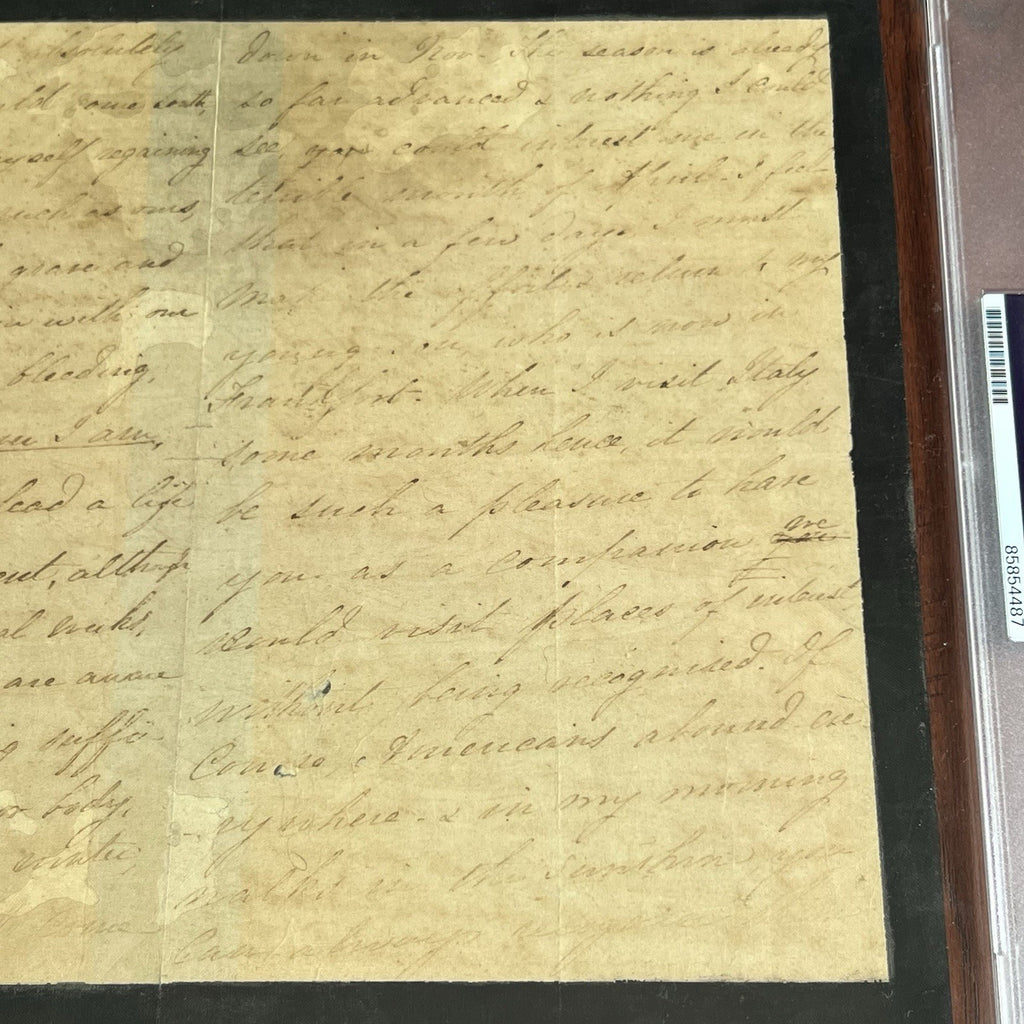 absolutely
come South,
myself regaining
such as ours,
grave and
with our
bleeding,
I am,
lead a life
although
weeks,
are aware
body,
winter,
down in Nov. The season is already
so far advanced & nothing I could
see, you could interest me in the
terrible month of April. I feel
that in a few days I must
make the effort & return to my
young who is now in
Frankfort. When I visit Italy
some months hence, it would
be such a pleasure to have
you as a companion we
would visit places of interest
without being recognised. Of
Course, Americans abound eve
ry where & in my morning
walks in the sunshine you
can always recognise
85854487